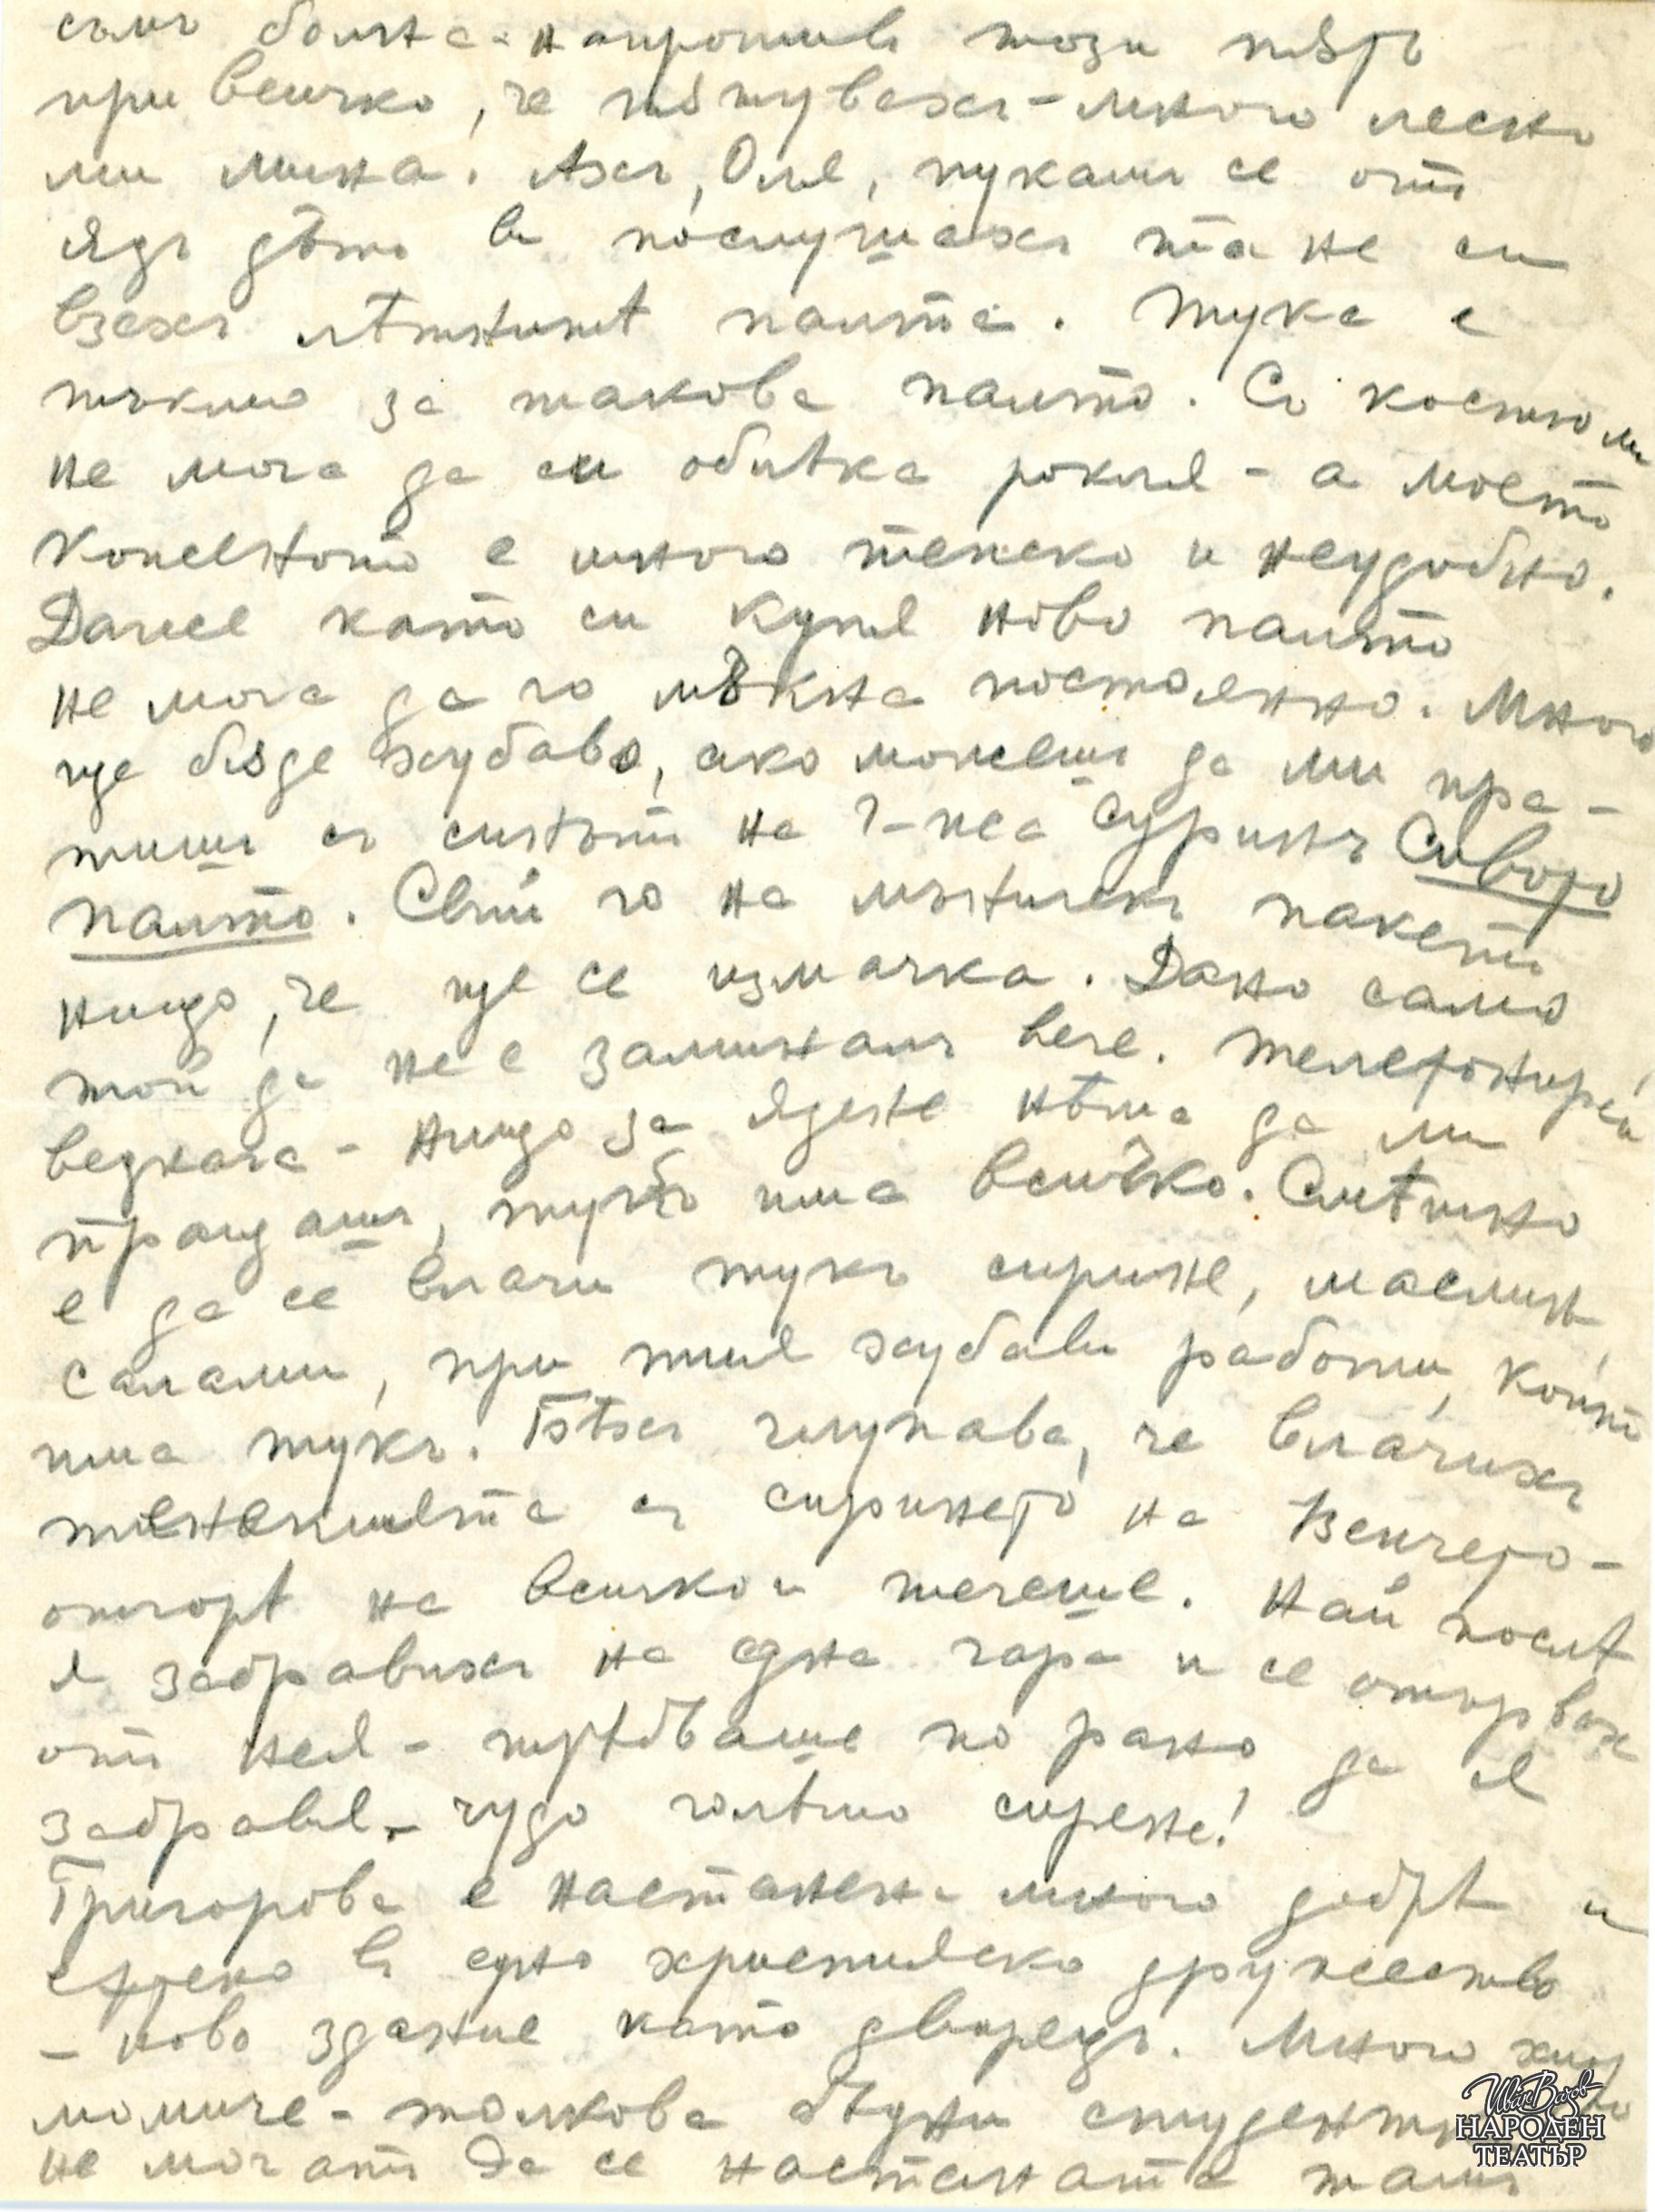 съмъ болна - напротивъ този пѫть
при всичко, че пѫтувахъ - много лесно
ми мина. Ахъ, Оле, пукамъ се отъ
ядъ дѣто ви послушахъ та не си
взехъ лѣтнитѣ палта. Тука е
тъкмо за такова палто. Съ костюм
не мога да си облѣка рокля - а моето
кожено е много тежко и неудобно.
Далие като си купя ново палто
не мога да го мъкна постоянно. Много
ще бѫде хубаво, ако можешъ да ми пра-
тишъ съ синътъ на г-жа Суринъ Сивото
палто. Свий го на мъничекъ пакетъ
нищо, че ще се измачка. Дано само
той да не е заминалъ вече. Телефонирай
веднага - нищо за ядене нѣма да ми
пращашъ, тукъ има всичко. Смѣшно
е да се влачи тукъ сирине, маслини,
салами, при тия хубави работи, които
има тукъ. Бѣхъ глупава, че влачихъ
тенекията съ сиринето на Венчето -
отгорѣ на всичко и течеше. Най послѣ
я забравихъ на една гара и се отървах
отъ нея - трѣбваше по рано да я
забравя - чудо голѣмо сирене!
Григорова е настанена много добрѣ и
евтено въ едно християнско дружество
- ново здание като дворецъ. Много хитро
момиче - толкова бѣдни студентки
не могатъ да се настанятъ тамъ
Иван Вазов
НАРОДЕН
ТЕАТЪР